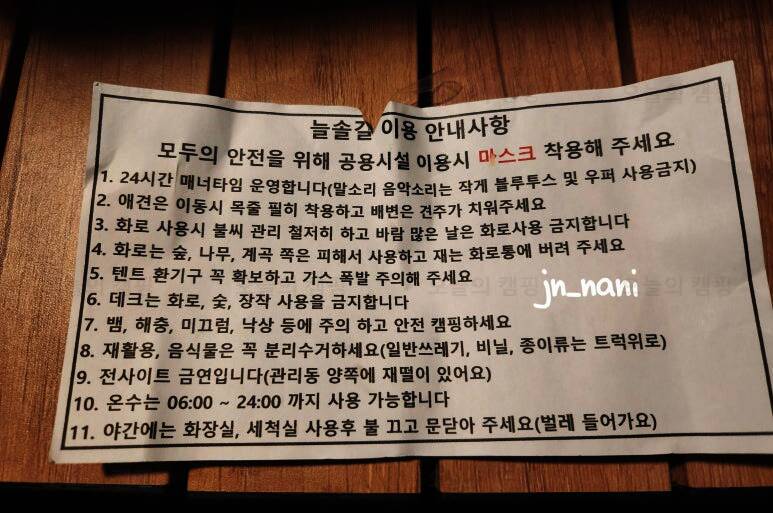 늘솔길 이용 안내사항
모두의 안전을 위해 공용시설 이용시 마스크 착용해 주세요
1. 24시간 매너타임 운영합니다(말소리 음악소리는 작게 블루투스 및 우퍼 사용금지)
2. 애견은 이동시 목줄 필히 착용하고 배변은 견주가 치워주세요
3. 화로 사용시 불씨 관리 철저히 하고 바람 많은 날은 화로사용 금지합니다
4. 화로는 숲, 나무, 계곡 쪽은 피해서 사용하고 재는 화로통에 버려 주세요
5. 텐트 환기구 꼭 확보하고 가스 폭발 주의해 주세요
jn_nani
6. 데크는 화로, 숯, 장작 사용을 금지합니다
7. 뱀, 해충, 미끄럼, 낙상 등에 주의 하고 안전 캠핑하세요
8. 재활용, 음식물은 꼭 분리수거하세요(일반쓰레기, 비닐, 종이류는 트럭위로)
9. 전사이트 금연입니다(관리동 양쪽에 재떨이 있어요)
10. 온수는 06:00 ~ 24:00 까지 사용 가능합니다
11. 야간에는 화장실, 세척실 사용후 불 끄고 문닫아 주세요(벌레 들어가요)